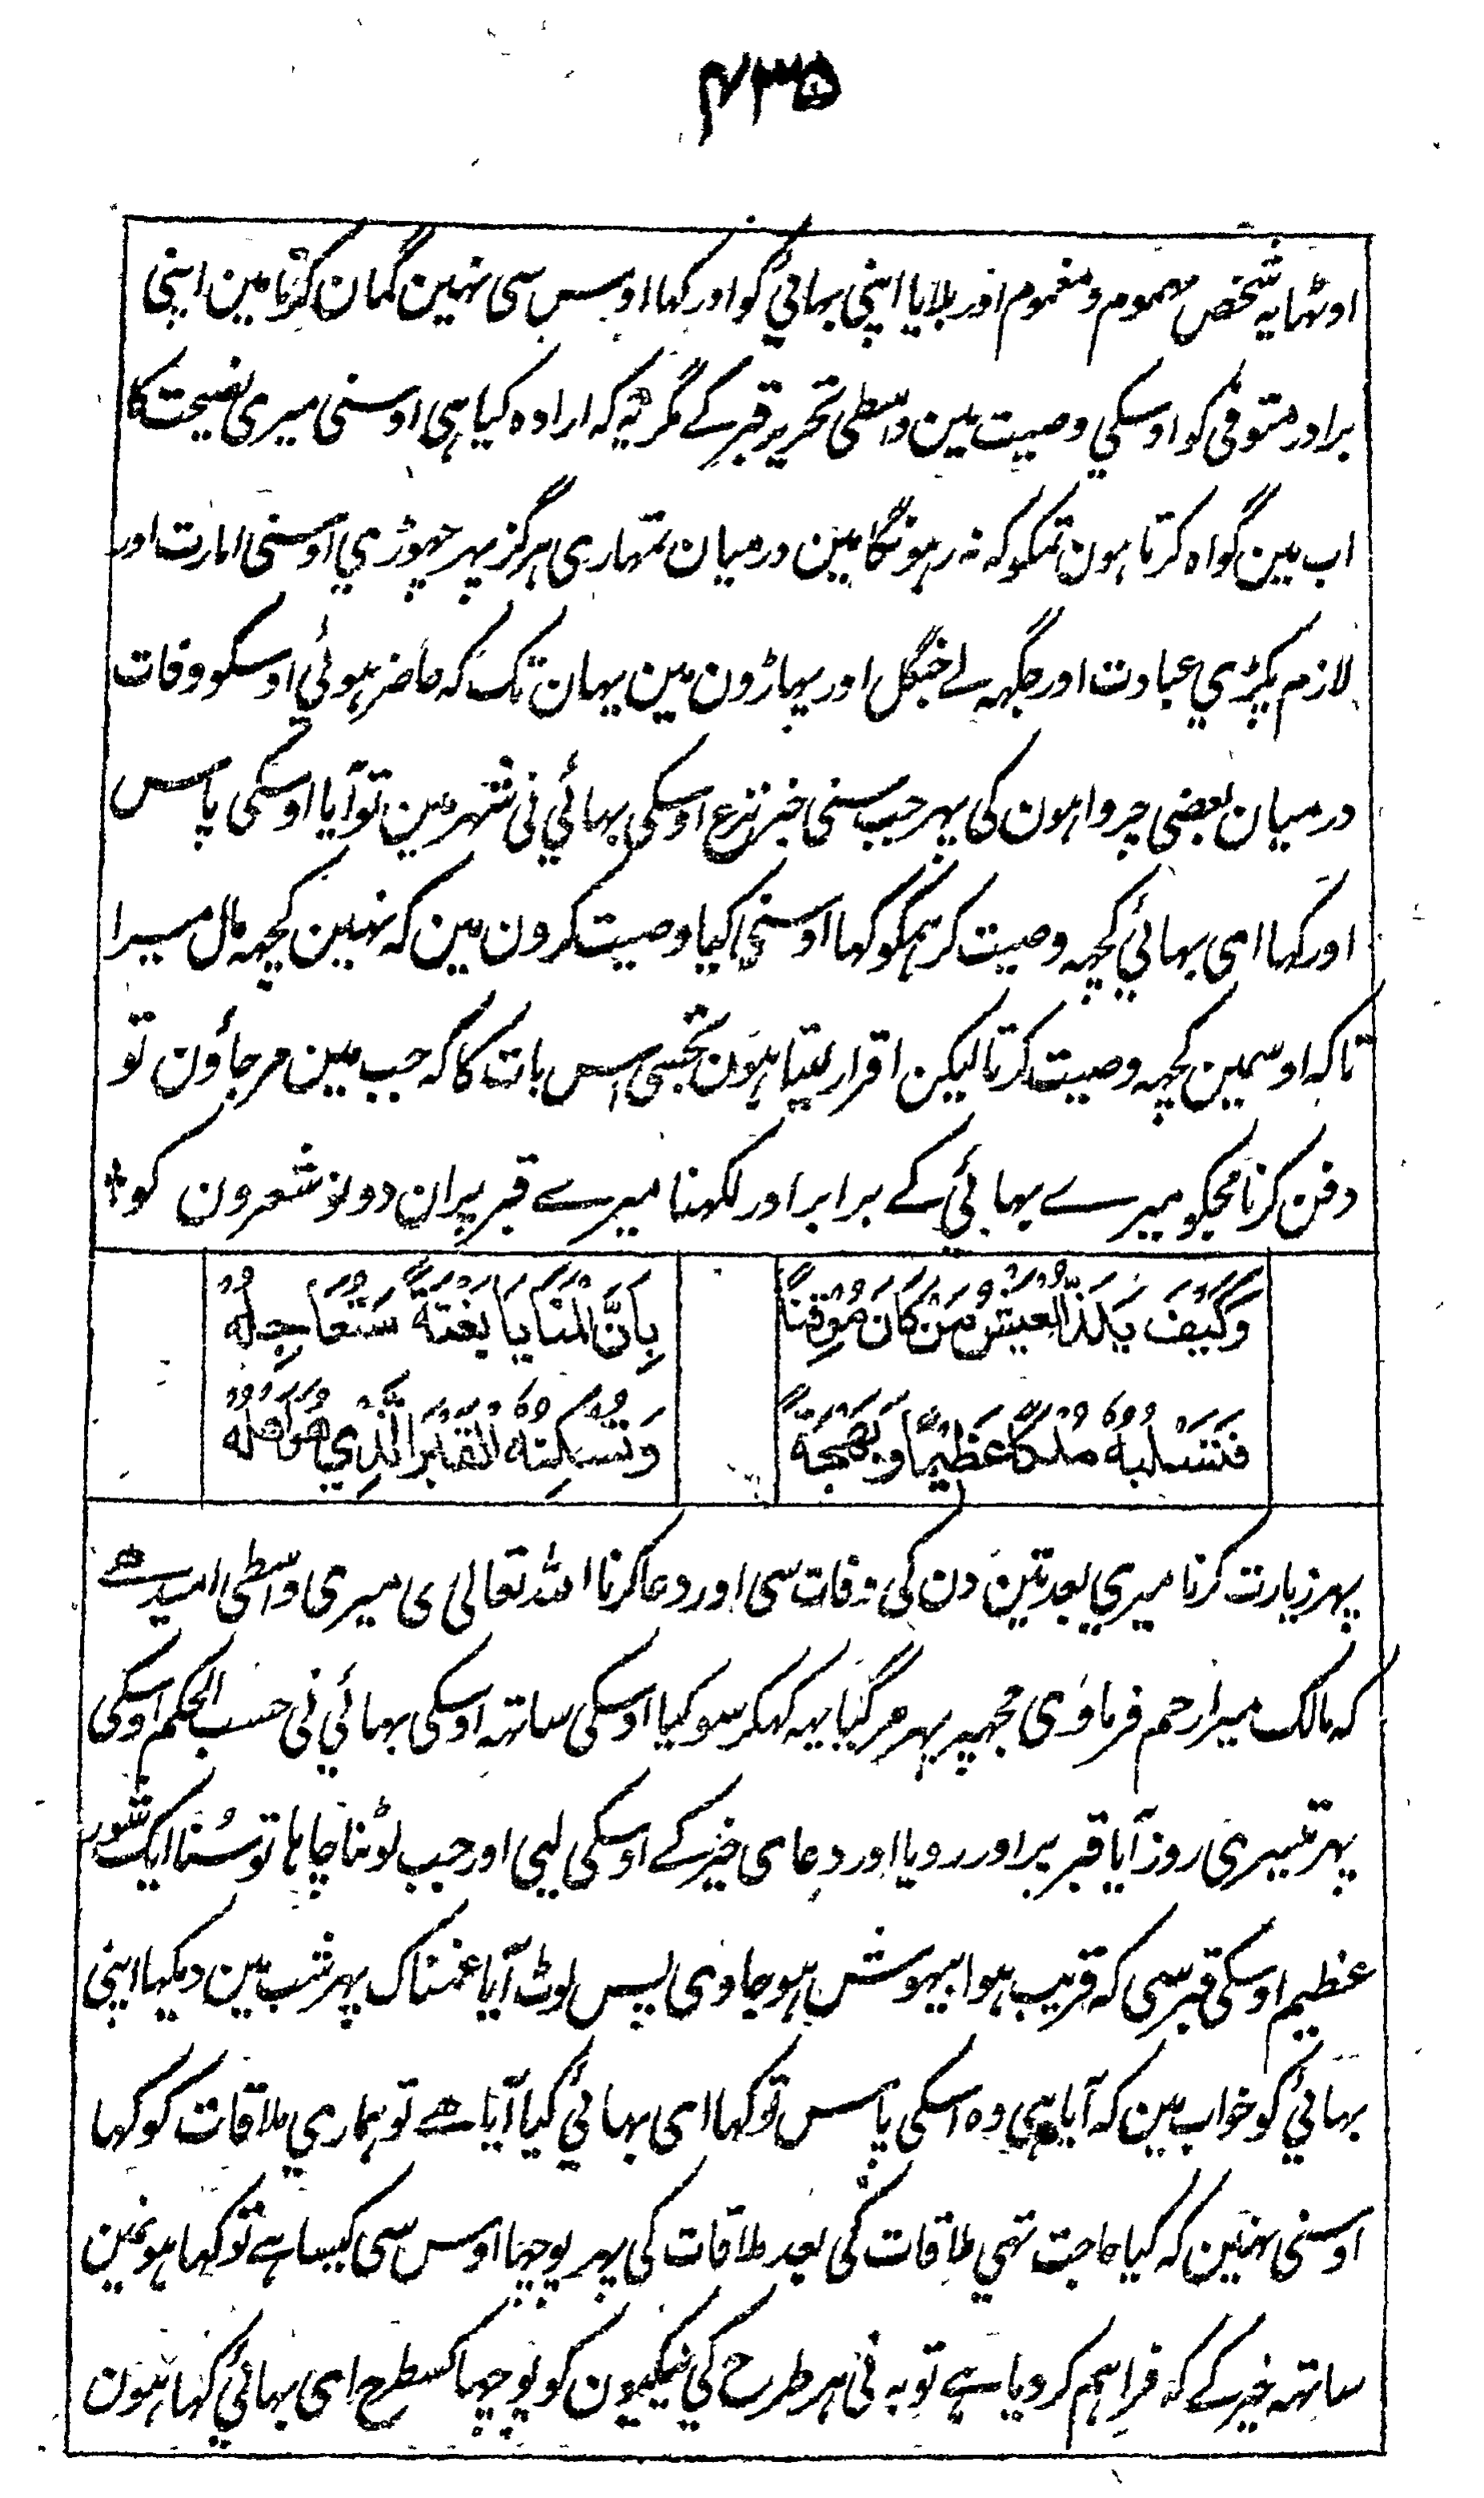 ۴۳۵
اوٹہا یہ شخص مہموم و مغموم اور بلایا اپنی بہائي کو اور کہا اوس سی نہین گمان کرتا مین اپنی
برادر متوفی کو اوسکي وصیت مین واسطی تحریر قبر کے مگر یہ کہ ارادہ کیا ہی اوسنی میری نصیحت کا
اب مین گواہ کرتا ہون تمکو کہ نہ رہونگا مین درمیان تمہاری ہرگز پہر چہوڑي اوسنی امارت اور
لازم پکڑي عبادت اور جگہہ لے جنگل اور پہاڑون مین یہان تک کہ حاضر ہوئي اوسکو وفات
درمیان بعضی چرواہون کی پہر جب سنی خبر نزع اوسکی بہائي نی شہر مین تو آیا اوسکی پاس
اور کہا ای بہائي کچہہ وصیت کر ہمکو کہا اوسنی کیا وصیت کرون مین کہ نہین کچہہ مال میرا
تاکہ اوسمین کچہہ وصیت کرتا لیکن اقرار لیتا ہون تجسی اس بات کا کہ جب مین مر جاؤن تو
دفن کرنا مجکو میرے بہائي کے برابر اور لکہنا میرے قبر پر ان دونو شعرون کو
وَكَيْفَ يَلَذُّ الْعَيْشَ مَنْ كَانَ مُوْقِنًا بِاَنَّ الْمَنَايَا بَغْتَةً سَتُعَاجِلُهُ
فَتَسْلُبُهُ مُلْكًا عَظِيْمًا وَبَهْجَةً وَتُسْكِنُهُ الْقَبْرَ الَّذِيْ هُوَ اَهْلُهُ
پہر زیارت کرنا میري بعد تین دن کی وفات سی اور دعا کرنا اللہ تعالی ی میری واسطی امید ہے
کہ مالک میرا رحم فرماوی مجہہ پر پہر مر گیا یہہ کہکر سو کیا اوسکی ساتہہ اوسکی بہائي نی حسب الحکم اوسکی
پہر تیسری روز آیا قبر پر اور رویا اور دعای خیر کے اوسکی لیی اور جب لوٹنا چاہا تو سُنا ایک شور
عظیم اوسکی قبر سی کہ قریب ہوا بیہوش ہو جاوی پس لوٹ آیا غمناک پہر شب مین دیکہا اپنی
بہائي کو خواب مین کہ آیا ہی وہ اسکی پاس تو کہا ای بہائي کیا آیا ہے تو ہماري ملاقات کو کہا
اوسنی نہین کہ کیا حاجت تہي ملاقات کی بعد ملاقات کی پہر پوچہا اوس سی کیسا ہے تو کہا ہونمین
ساتہہ خیر کے کہ فراہم کر دیا ہے توبہ نی ہر طرح کي نیکیون کو پوچہا کسطرح ای بہائي کہا ہون